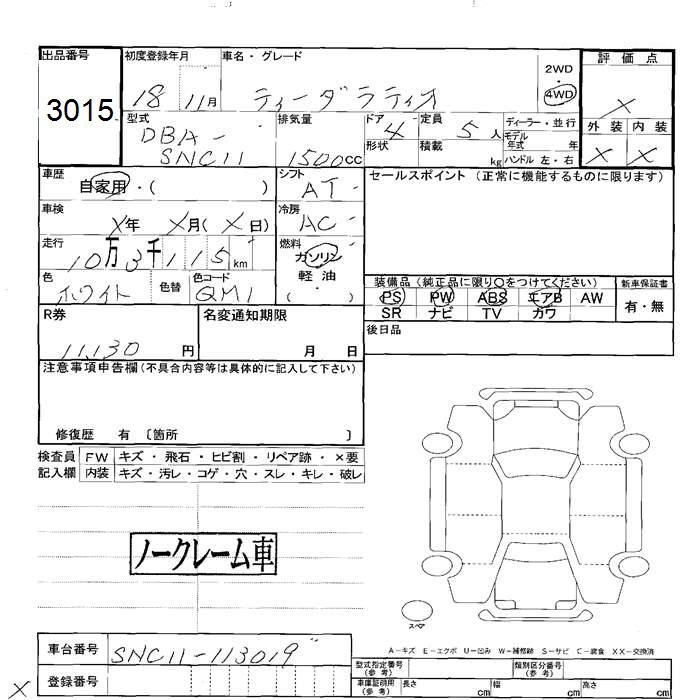 出品番号 初度登録年月 車名・グレード 評価点
3015 18 11月 ティーダラティオ 2WD ×
4WD
型式 排気量 ドア 4 定員 5人 ディーラー・並行 外装 内装
DBA- モデル
SNC11 1500cc 形状 積載 kg 年式 年 × ×
ハンドル 左・右
車歴 シフト セールスポイント (正常に機能するものに限ります)
自家用・( ) AT
車検 冷房
X年 X月(X日) AC
走行 燃料
10万3千115km ガソリン
軽油
( )
色 色替 色コード 装備品(純正品に限り○をつけてください) 新車保証書
ホワイト QM1 PS PW ABS エアB AW 有・無
SR ナビ TV カワ
R券 名変通知期限 後日品
11,130円 月 日
注意事項申告欄(不具合内容等は具体的に記入して下さい)
修復歴 有 〔箇所 〕
検査員 FW キズ・飛石・ヒビ割・リペア跡・×要
記入欄 内装 キズ・汚レ・コゲ・穴・スレ・キレ・破レ
ノークレーム車
スペア
A-キズ E-エクボ U-凹み W-補修跡 S-サビ C-腐食 XX-交換済
車台番号 SNC11-113019
型式指定番号(参考) 類別区分番号(参考)
登録番号
車庫証明用(参考) 長さ cm 幅 cm 高さ cm
×